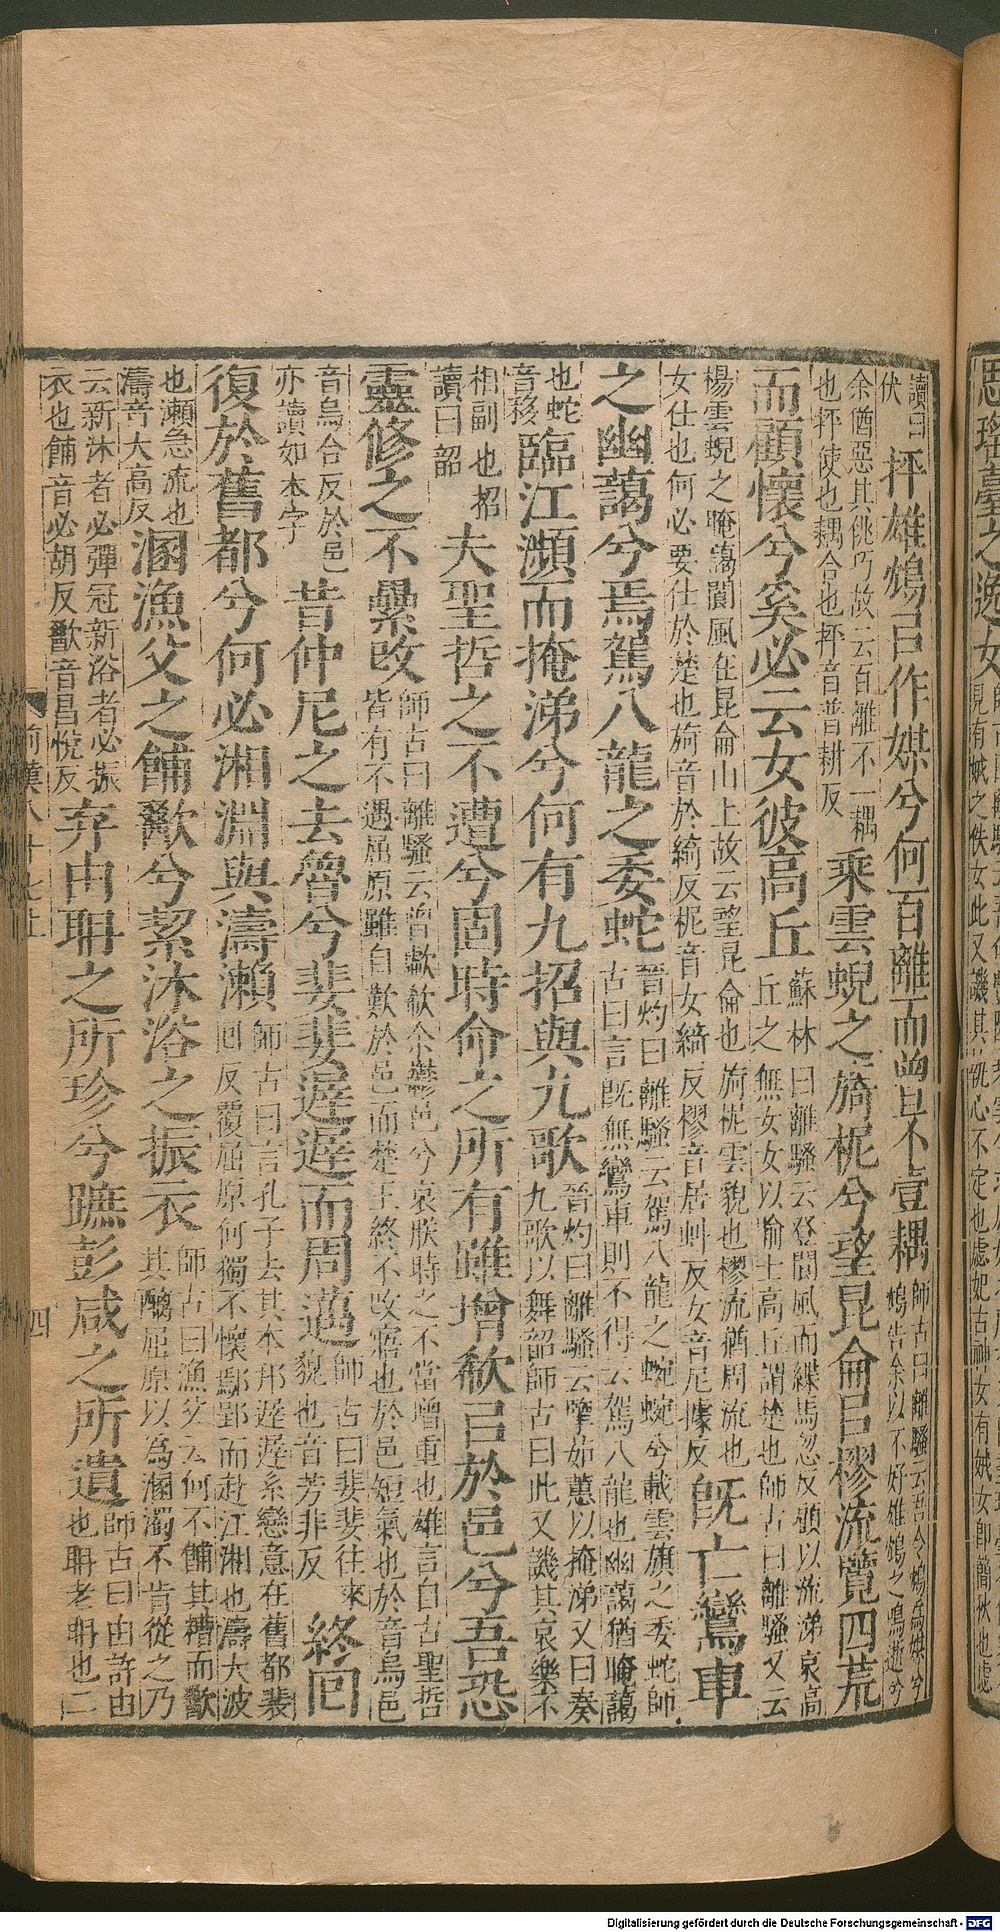 讀曰伏抨雄鴆㠯作媒兮何百離而曾不壹耦師古曰離騷云吾令鴆爲媒兮鴆告余以不好雄鴆之鳴逝兮
余猶惡其佻巧故云百離不一耦也抨使也耦合也抨音普耕反乘雲蜺之旖柅兮望昆侖㠯樛流覽四荒
而顧懷兮奚必云女彼高丘蘇林曰離騷云登閬風而緤馬忽反顧以流涕哀高丘之無女女以喻士高丘謂楚也師古曰離騷又云
楊雲蜺之晻藹閬風在昆侖山上故云望昆侖也旖柅雲貌也樛流猶周流也女仕也何必要仕於楚也旖音於綺反柅音女綺反樛音居虯反女音尼據反旣亡鸞車
之幽藹兮焉駕八龍之委蛇晉灼曰離騷云駕八龍之蜿蜿兮載雲旗之委蛇師古曰言旣無鸞車則不得云駕八龍也幽藹猶晻藹
也蛇音移臨江瀕而掩涕兮何有九招與九歌晉灼曰離騷云擥茹蕙以掩涕又曰奏九歌以舞韶師古曰此又譏其哀樂不
相副也招讀曰韶夫聖哲之不遭兮固時命之所有雖增欷㠯於邑兮吾恐
靈修之不纍改師古曰離騷云曾歔欷余鬱邑兮哀朕時之不當增重也雄言自古聖哲皆有不遇屈原雖自歎於邑而楚王終不改寤也於邑短氣也於音烏邑
音烏合反於邑亦讀如本字昔仲尼之去魯兮斐斐遲遲而周邁師古曰斐斐往來貌也音芳非反終回
復於舊都兮何必湘淵與濤瀨師古曰言孔子去其本邦遲遲系戀意在舊都裴回反覆屈原何獨不懷鄢郢而赴江湘也濤大波
也瀨急流也濤音大高反溷漁父之餔歠兮絜沐浴之振衣師古曰漁父云何不餔其糟而歠其醨屈原以為溷濁不肯從之乃
云新沐者必彈冠新浴者必振衣也餔音必胡反歠音昌悅反弃由聃之所珍兮蹠彭咸之所遺師古曰由許由也聃老聃也二
前漢八十七上
四
Digitalisierung gefördert durch die Deutsche Forschungsgemeinschaft - DFG